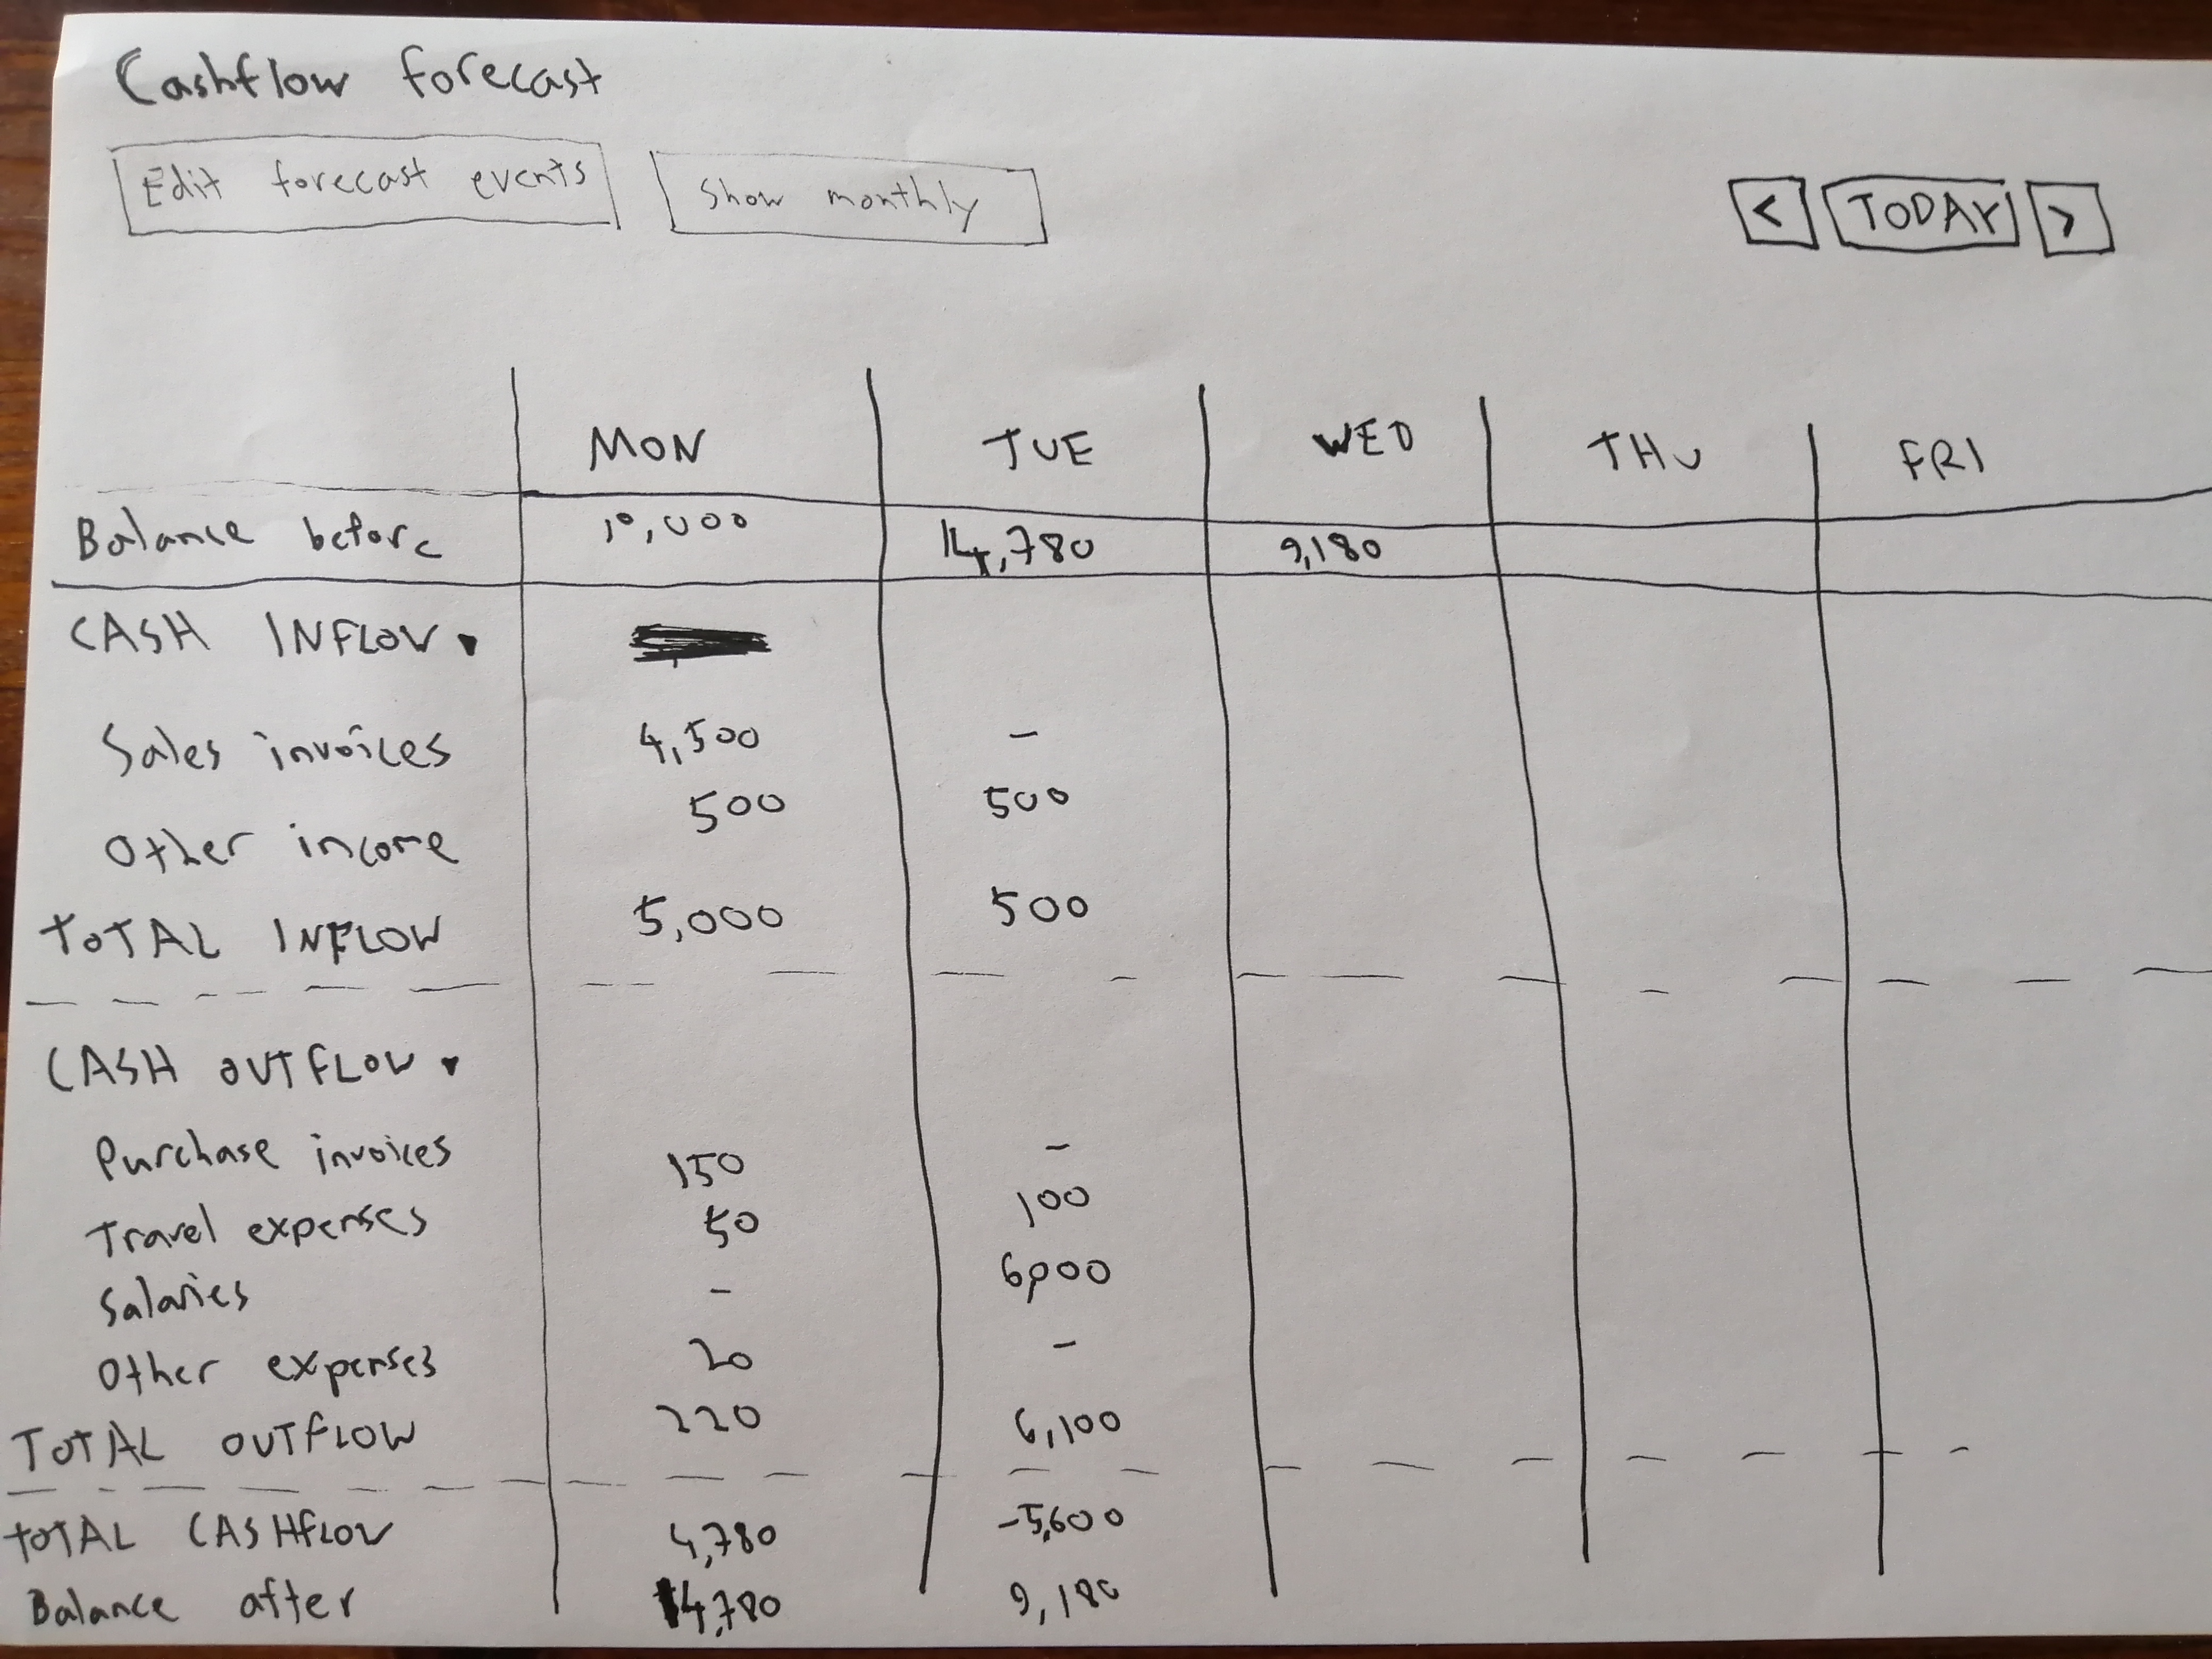 Cashflow forecast
Edit forecast events Show monthly < TODAY >
MON TUE WED THU FRI
Balance before 10,000 14,780 9,180
CASH INFLOW ▾
Sales invoices 4,500 -
Other income 500 500
TOTAL INFLOW 5,000 500
CASH OUTFLOW ▾
Purchase invoices 150 -
Travel expenses 50 100
Salaries - 6,000
Other expenses 20 -
TOTAL OUTFLOW 220 6,100
TOTAL CASHFLOW 4,780 -5,600
Balance after 14,780 9,180